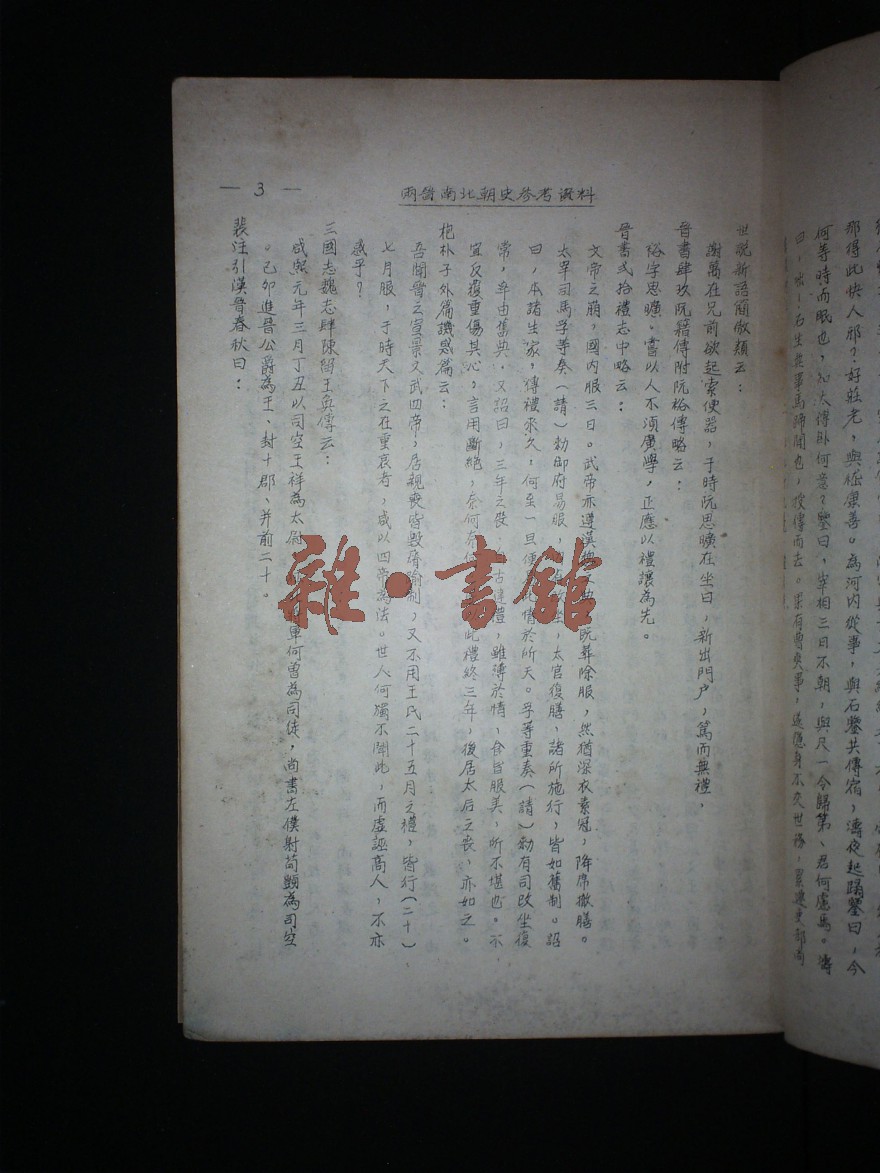 那得此快人邪？好莊老，與嵇康善。為河內從事，與石鑒共傳宿，濤夜起蹋鑒曰，今
何等時而眠也，知太傅臥何意？鑒曰，宰相三日不朝，與尺一令歸第、君何慮焉。濤
曰，咄！石生無事馬蹄間也，投傳而去。果有曹爽事，遂隱身不交世務，累遷吏部尚
兩晉南北朝史參考資料
— 3 —
世説新語簡傲類云：
謝萬在兄前欲起索便器，于時阮思曠在坐曰，新出門户，篤而無禮，
晉書肆玖阮籍傳附阮裕傳略云：
裕字思曠。嘗以人不須廣學，正應以禮讓為先。
晉書貳拾禮志中略云：
文帝之崩，國內服三日。武帝亦遵漢魏之典，既葬除服，然猶深衣素冠，降席撤膳。
太宰司馬孚等奏（請）勅御府易服，坐，太官復膳，諸所施行，皆如舊制。詔
曰，本諸生家，傳禮來久，何至一旦便情於所天。孚等重奏（請）勅有司改坐復
常，率由舊典。又詔曰，三年之喪，古達禮，雖薄於情，食旨服美，所不堪也。不
宜反覆重傷其心，言用斷絕，奈何奈何此禮終三年，後居太后之喪，亦如之。
抱朴子外篇譏惑篇云：
吾聞晉之宣景文武四帝，居親喪皆毀瘠踰制，又不用王氏二十五月之禮，皆行（二十）
七月服，于時天下之在重哀者，咸以四帝為法。世人何獨不聞此，而虛誣高人，不亦
惑乎？
三國志魏志肆陳留王奐傳云：
咸熙元年三月丁丑以司空王祥為太尉軍何曾為司徒，尚書左僕射荀顗為司空
。己卯進晉公爵為王、封十郡、并前二十。
裴注引漢晉春秋曰：
雜·書館